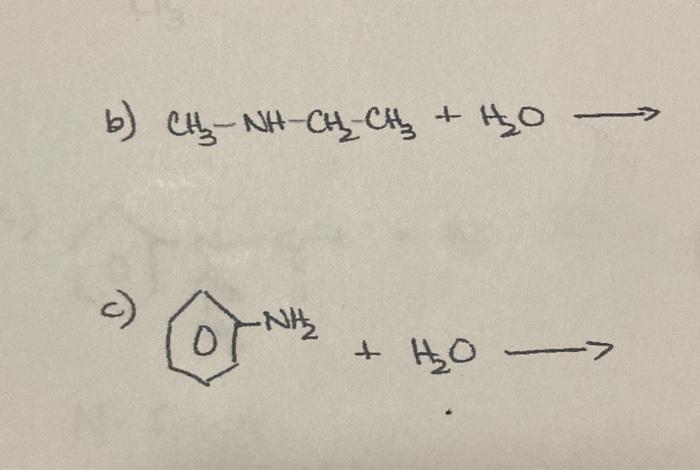 b) CH₃-NH-CH₂-CH₃ + H₂O ⟶
c) -NH₂ + H₂O ⟶